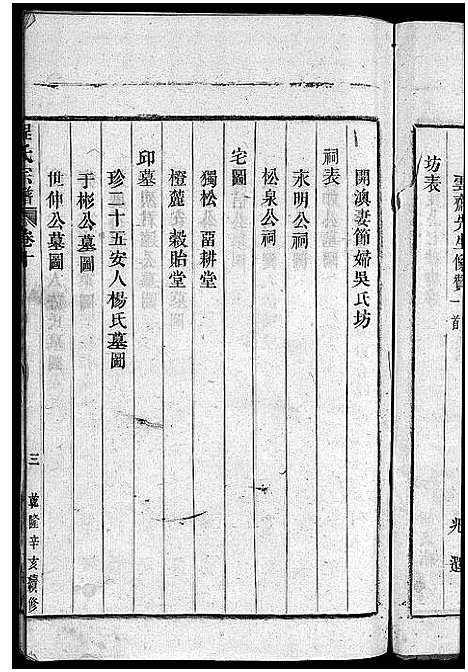 雲齋先生像贊一首
坊表
兆選
開澳妻節婦吳氏坊
祠表
永明公祠
松泉公祠
宅圖
獨松公留耕堂
橙麓公穀貽堂
邱墓
珍二十五安人楊氏墓圖
于彬公墓圖
世仲公墓圖
程氏宗譜 卷十
三 乾隆辛亥續修